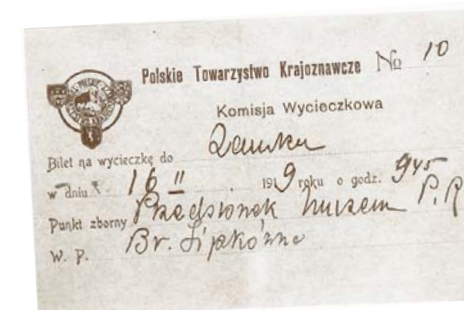 Polskie Towarzystwo Krajoznawcze No 10
Komisja Wycieczkowa
Bilet na wycieczkę do Zamku
w dniu 16 II 1919 roku o godz. 9 45
Punkt zborny Przedsionek P. R
W. P. Br.